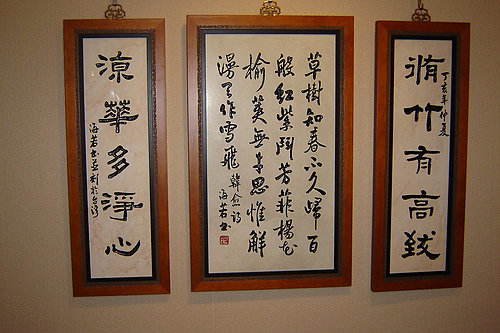 脩竹有高致
丁亥年仲夏
草樹知春不久歸百
般紅紫鬥芳菲楊花
榆莢無才思惟解
漫天作雪飛 韓愈詩
海若書
涼華多淨心
海若書並刻於台灣